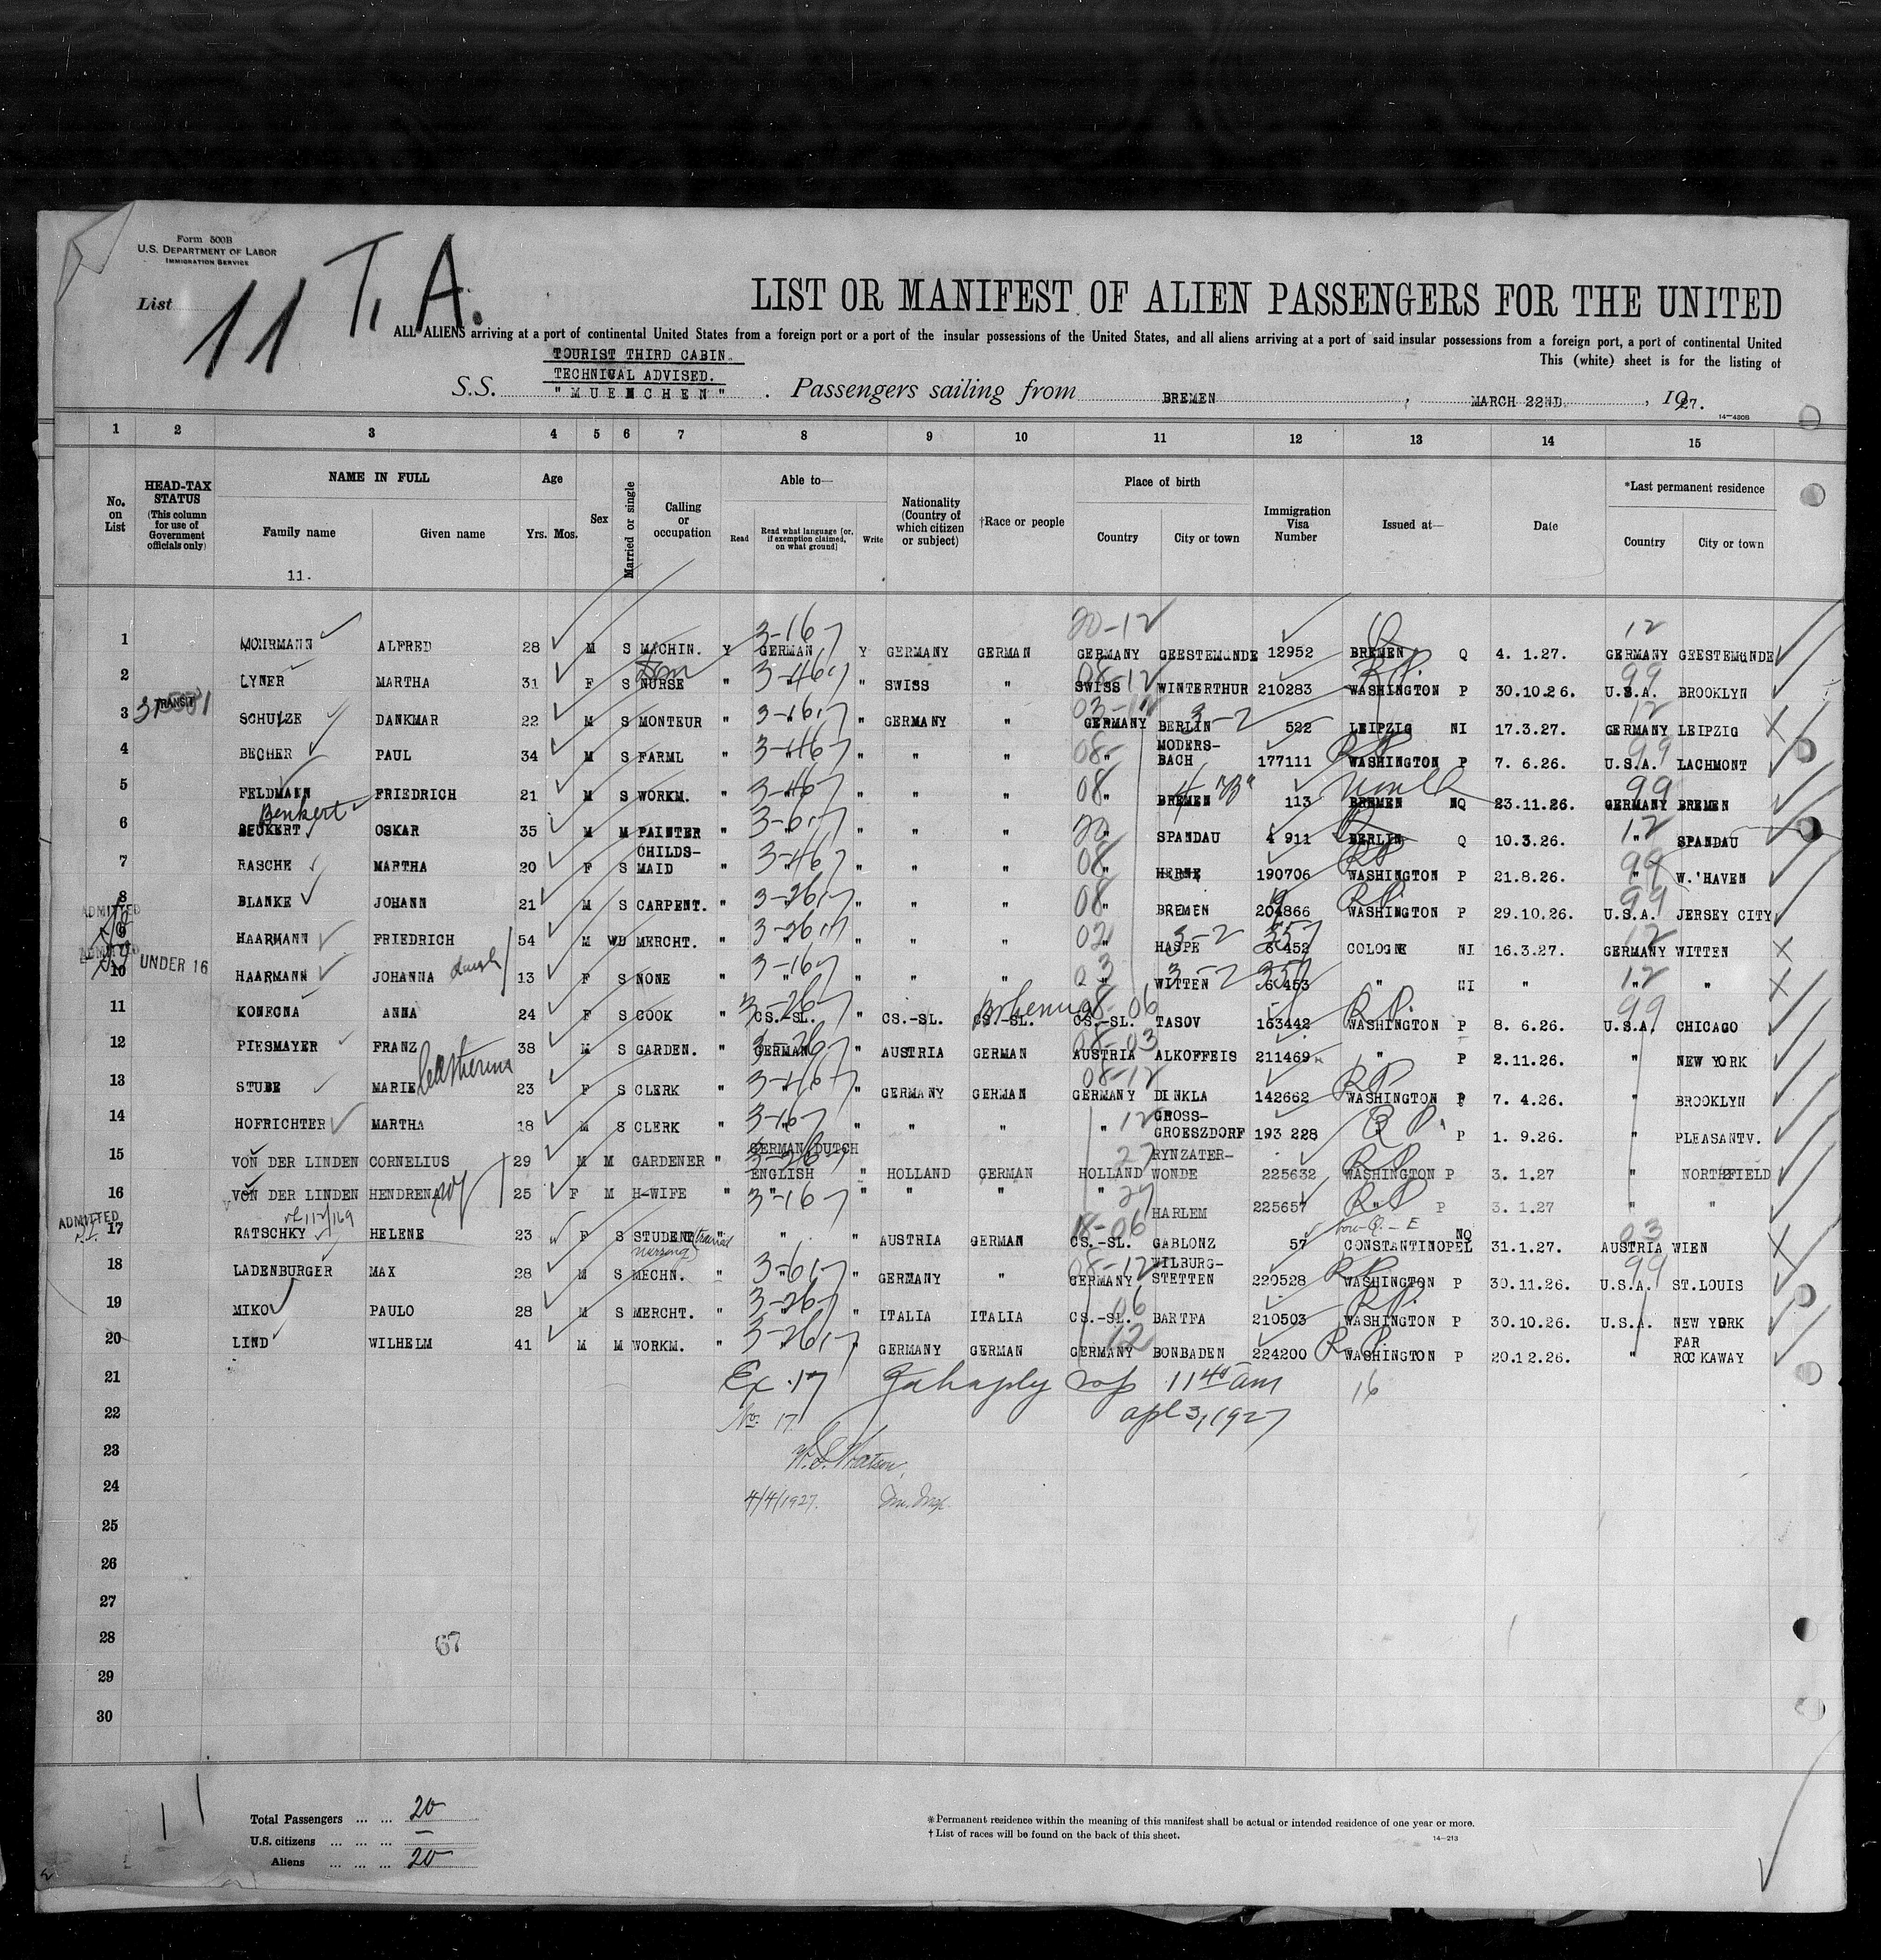 Form 500B
U.S. DEPARTMENT OF LABOR
IMMIGRATION SERVICE
List 11 T. A.
LIST OR MANIFEST OF ALIEN PASSENGERS FOR THE UNITED
ALL ALIENS arriving at a port of continental United States from a foreign port or a port of the insular possessions of the United States, and all aliens arriving at a port of said insular possessions from a foreign port, a port of continental United
This (white) sheet is for the listing of
TOURIST THIRD CABIN.
TECHNICAL ADVISED.
S.S. "MUENCHEN". Passengers sailing from BREMEN, MARCH 22ND., 1927.
14-430B
1 2 3 4 5 6 7 8 9 10 11 12 13 14 15
No. on List
HEAD-TAX STATUS (This column for use of Government officials only)
NAME IN FULL
Family name Given name
11.
Age Yrs. Mos.
Sex
Married or single
Calling or occupation
Able to—
Read
Read what language [or, if exemption claimed, on what ground]
Write
Nationality (Country of which citizen or subject)
†Race or people
Place of birth
Country City or town
Immigration Visa Number
Issued at—
Date
*Last permanent residence
Country City or town
1 MOHRMANN ALFRED 28 M S MACHIN. Y GERMAN 3-16-7 Y GERMANY GERMAN GERMANY 20-12 GEESTEMUNDE 12952 BREMEN Q 4. 1.27. GERMANY 12 GEESTEMUNDE
2 LYNER MARTHA 31 F S NURSE " " " SWISS " SWISS 08-12 WINTERTHUR 210283 WASHINGTON R.P. P 30.10.26. U.S.A. 99 BROOKLYN
3 TRANSIT SCHULZE DANKMAR 22 M S MONTEUR " " " GERMANY " GERMANY BERLIN 3-2 522 LEIPZIG NI 17.3.27. GERMANY 12 LEIPZIG
4 BECHER PAUL 34 M S FARML " " " " " " 08 MODERS-BACH 177111 WASHINGTON P 7. 6.26. U.S.A. 99 LACHMONT
5 FELDMANN FRIEDRICH 21 M S WORKM. " " " " " " 08 BREMEN 113 BREMEN NQ 23.11.26. GERMANY 99 BREMEN
6 Benkert BEUKERT OSKAR 35 M M PAINTER " " " " " " 20 SPANDAU 4 911 BERLIN Q 10.3.26. " 12 SPANDAU
7 RASCHE MARTHA 20 F S CHILDS-MAID " " " " " " 08 HERNE 190706 WASHINGTON P 21.8.26. " 99 W.'HAVEN
8 BLANKE JOHANN 21 M S CARPENT. " " " " " " 08 BREMEN 204866 WASHINGTON R.P. P 29.10.26. U.S.A. 99 JERSEY CITY
ADMITTED
9 HAARMANN FRIEDRICH 54 M WD MERCHT. " " " " " " 02 HASPE 3-2 6 452 357 COLOGNE NI 16.3.27. GERMANY 12 WITTEN
ADMITTED
10 UNDER 16 HAARMANN JOHANNA 13 F S NONE " " 3-16-7 " " " " 03 WITTEN 3-2 6 453 357 " NI " " 12 "
11 KONECNA ANNA 24 F S COOK " CS.-SL. 3-26-7 " CS.-SL. CS.-SL. Bohemia CS.-SL. 08-06 TASOV 163442 WASHINGTON R.P. P 8. 6.26. U.S.A. 99 CHICAGO
12 PIESMAYER FRANZ 38 M S GARDEN. " GERMAN 3-26-7 " AUSTRIA GERMAN AUSTRIA 08-03 ALKOFFEIS 211469 " P 2.11.26. " NEW YORK
13 STUBE MARIE Catherina 23 F S CLERK " " " GERMANY GERMAN GERMANY 08-12 DINKLA 142662 WASHINGTON R.P. P 7. 4.26. " BROOKLYN
14 HOFRICHTER MARTHA 18 M S CLERK " " 3-16-7 " " " " 12 GROSS-GROESZDORF 193 228 " R.P. P 1. 9.26. " PLEASANTV.
15 VON DER LINDEN CORNELIUS 29 M M GARDENER " GERMAN DUTCH ENGLISH " HOLLAND GERMAN HOLLAND 27 RYNZATER-WONDE 225632 WASHINGTON R.P. P 3. 1.27 " NORTHFIELD
16 VON DER LINDEN HENDRENA wf 25 F M H-WIFE " " 3-16-7 " " " " 27 HARLEM 225657 " R.P. P 3. 1.27 " "
ADMITTED
17 RATSCHKY HELENE 23 F S STUDENT (trained nursing) " " " AUSTRIA GERMAN CS.-SL. 18-06 GABLONZ 57 CONSTANTINOPEL NQ 31.1.27. AUSTRIA 03 WIEN
18 LADENBURGER MAX 28 M S MECHN. " " " GERMANY " GERMANY 08-12 WILBURG-STETTEN 220528 WASHINGTON R.P. P 30.11.26. U.S.A. 99 ST.LOUIS
19 MIKO PAULO 28 M S MERCHT. " " 3-26-7 " ITALIA ITALIA CS.-SL. 06 BARTFA 210503 WASHINGTON R.P. P 30.10.26. U.S.A. NEW YORK
20 LIND WILHELM 41 M M WORKM. " " " GERMANY GERMAN GERMANY 12 BONBADEN 224200 WASHINGTON R.P. P 20.12.26. " FAR ROCKAWAY
21 Ex. 17 11 40 am 16
22 No. 17. apl 3, 1927
23 W.S. Watson
24 4/4/1927. Im. Insp.
25
26
27
28 67
29
30
Total Passengers ... ... 20
U.S. citizens ... ... ... —
Aliens ... ... ... 20
* Permanent residence within the meaning of this manifest shall be actual or intended residence of one year or more.
† List of races will be found on the back of this sheet.
14-213